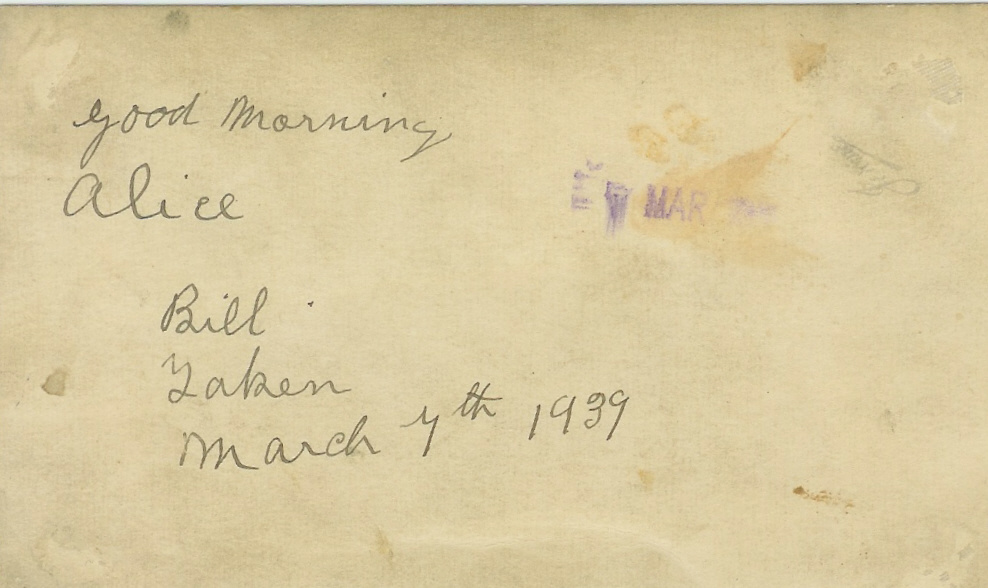 Good Morning
Alice
MAR
Bill
Taken
March 7th 1939